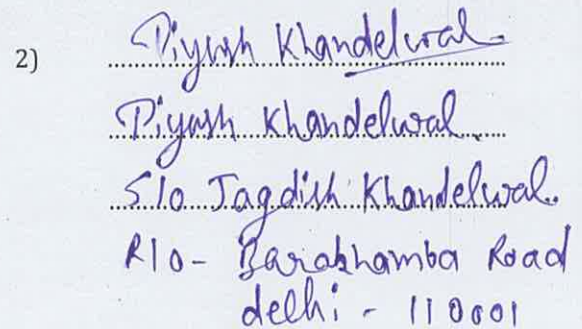 2) Piyush Khandelwal
Piyush Khandelwal
S/o Jagdish Khandelwal.
R/o - Barakhamba Road
delhi - 110001